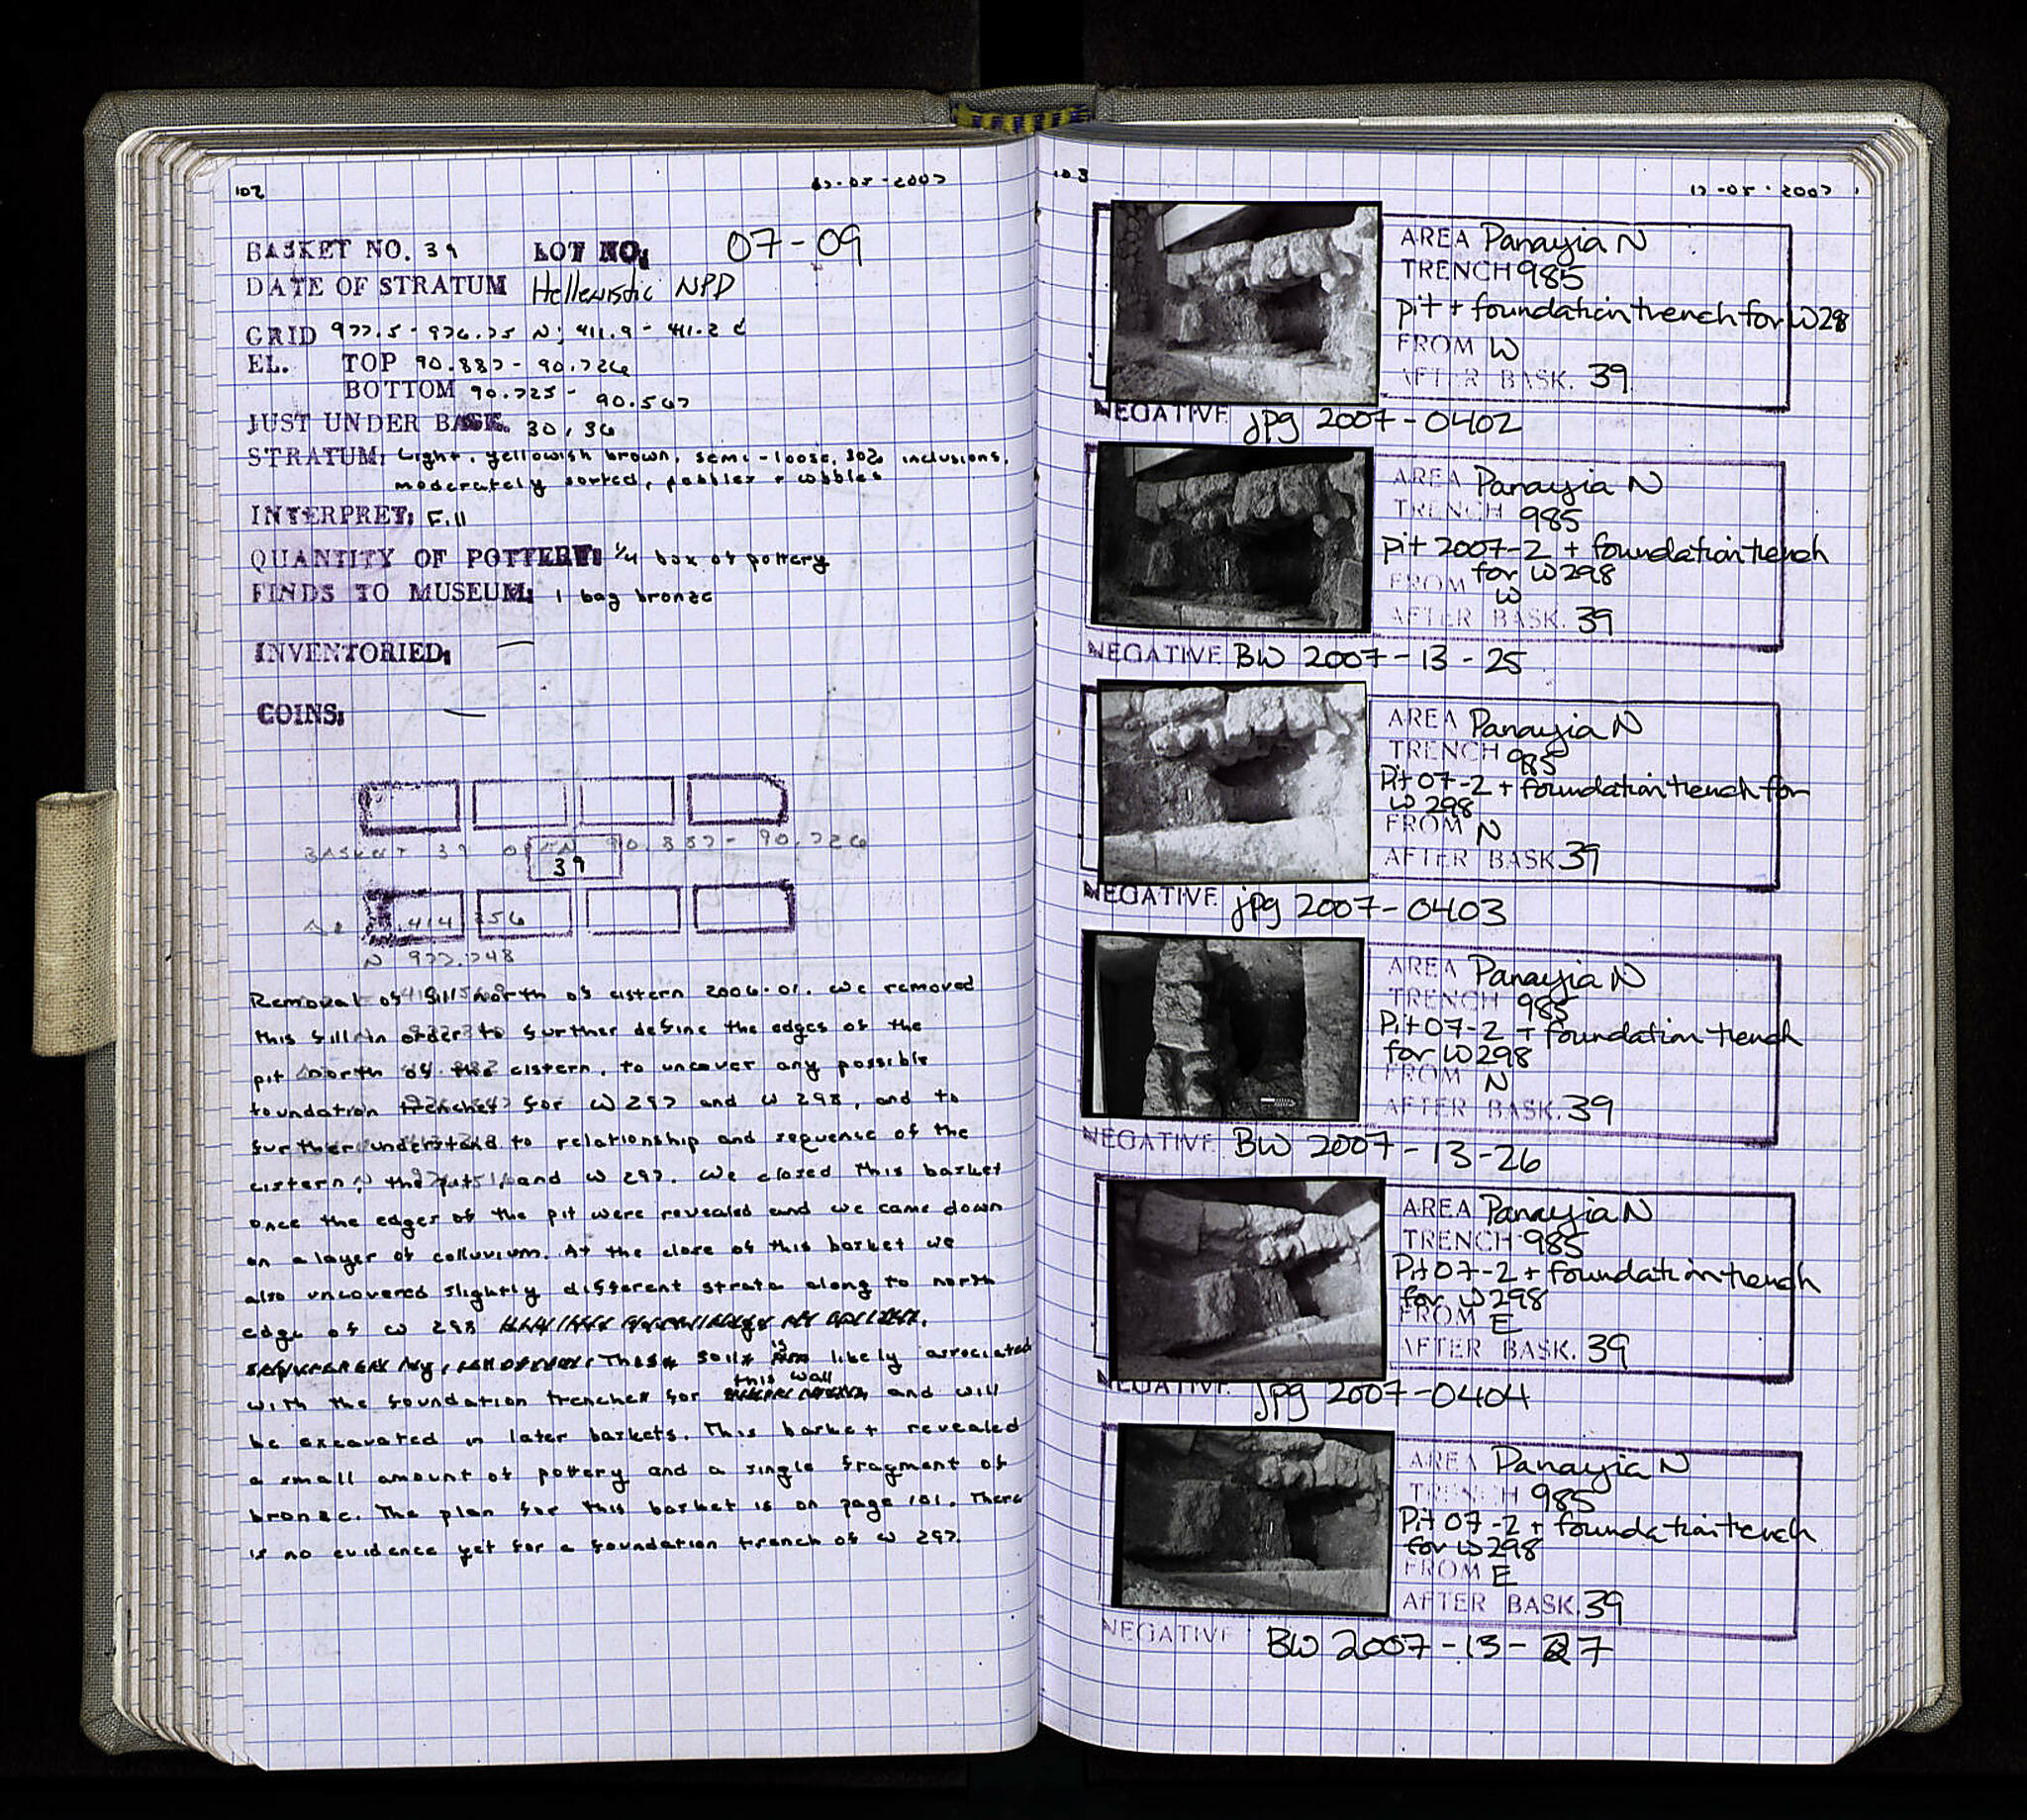 102
BASKET NO. 39 LOT NO: 07-09
DATE OF STRATUM Hellenistic NPD
GRID 977.5 - 976.75 N; 411.9 - 411.2 E
EL. TOP 90.887 - 90.726
BOTTOM 90.725 - 90.567
JUST UNDER BASK. 30, 36
STRATUM: Light, yellowish brown, semi-loose, 30% inclusions,
moderately sorted, pebbles + cobbles
INTERPRET: Fill
QUANTITY OF POTTERY: 1/4 box of pottery
FINDS TO MUSEUM: 1 bag bronze
INVENTORIED: —
COINS: —
BASKET 39 90.887 - 90.726
39
N 977.748
Removal of fill north of cistern 2006.01. We removed
this fill in order to further define the edges of the
pit north of the cistern, to uncover any possible
foundation trenches for W 297 and W 298, and to
further understand to relationship and sequence of the
cistern, the pit, and W 297. We closed this basket
once the edges of the pit were revealed and we came down
on a layer of colluvium. At the close of this basket we
also uncovered slightly different strata along to north
edge of W 298
This soil is likely associated
with the foundation trenches for this wall and will
be excavated in later baskets. This basket revealed
a small amount of pottery and a single fragment of
bronze. The plan for this basket is on page 101. There
is no evidence yet for a foundation trench of W 297.
103
17-05-2007
AREA Panayia N
TRENCH 985
pit + foundation trench for W298
FROM W
AFTER BASK. 39
NEGATIVE jpg 2007-0402
AREA Panayia N
TRENCH 985
pit 2007-2 + foundation trench
for W298
FROM W
AFTER BASK. 39
NEGATIVE BW 2007-13-25
AREA Panayia N
TRENCH 985
Pit 07-2 + foundation trench for
W298
FROM N
AFTER BASK. 39
NEGATIVE jpg 2007-0403
AREA Panayia N
TRENCH 985
Pit 07-2 + foundation trench
for W298
FROM N
AFTER BASK. 39
NEGATIVE BW 2007-13-26
AREA Panayia N
TRENCH 985
Pit 07-2 + foundation trench
for W298
FROM E
AFTER BASK. 39
NEGATIVE jpg 2007-0404
AREA Panayia N
TRENCH 985
Pit 07-2 + foundation trench
for W298
FROM E
AFTER BASK. 39
NEGATIVE BW 2007-13-27